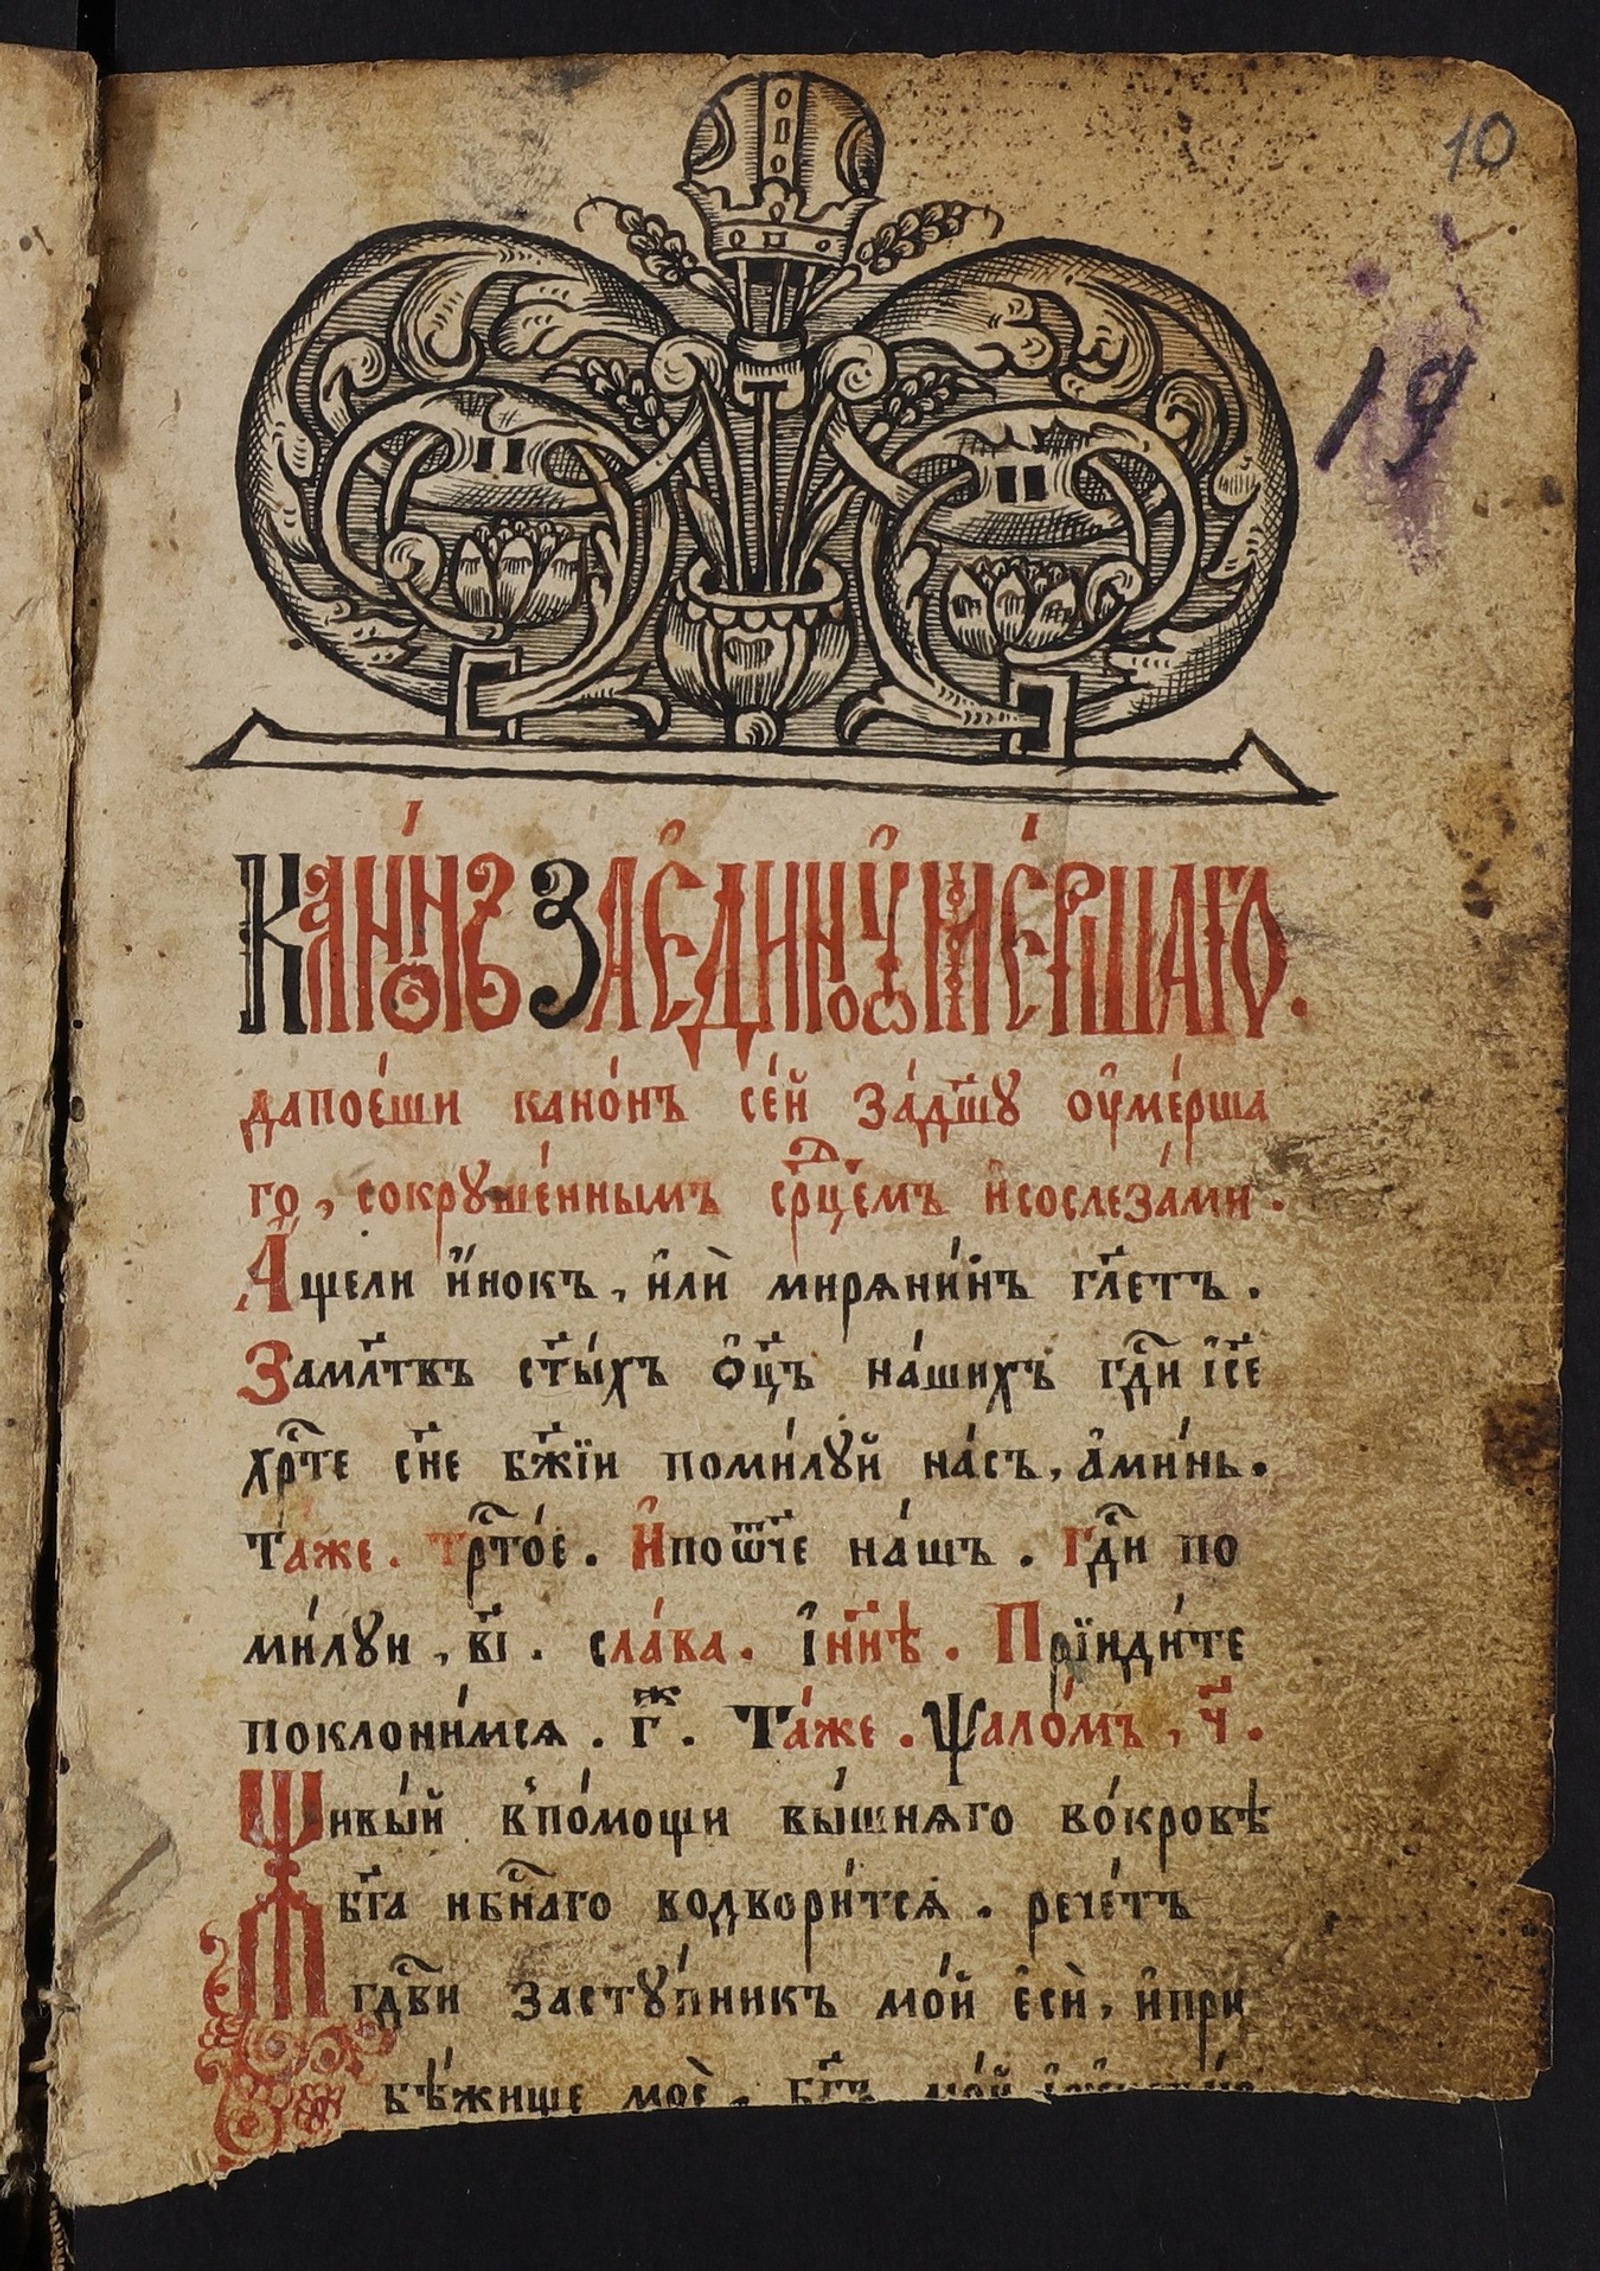 10
19
Кано́нъ За є҆ди́но ᲂу҆ме́ршаго.
дапое́ши кано́нъ се́й за́дш҃ꙋ ᲂу҆ме́рша
го, сокрꙋше́ннымъ срⷣцемъ и҆сослеза́ми.
А҆́щели и҆́нокъ, и҆лѝ мирѧни́нъ гл҃етъ.
Замл҃твъ ст҃ы́хъ ѻ҆ц҃ъ на́шихъ гдⷭ҇и і҆с҃е
хрⷭ҇те сн҃е бж҃їи поми́лꙋй на́съ, а҆ми́нь.
Таже. трⷭ҇то́е. И҆поѿч҃е на́шъ. Гдⷭ҇и по
ми́лꙋи, в҃і. сла́ва. і҆н҃нѣ. Прїиди́те
поклони́мсѧ. г҃ж. Та́же. Ѱало́мъ, ч҃.
Живы́й в̾по́мощи вы́шнѧго во́кровѣ
бг҃а нбⷭ҇наго водвори́тсѧ. рече́тъ
гдⷭ҇ви застꙋ́пникъ мо́й є҆сѝ, и҆при
бѣ́жище моѐ. бг҃ъ мо́й